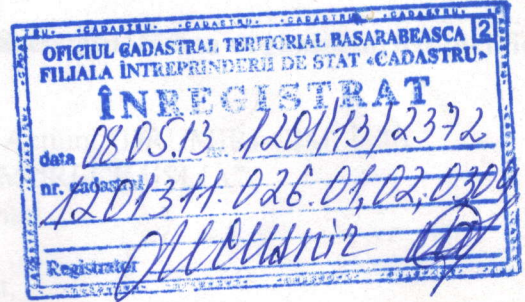 CADASTRU · CADASTRU · CADASTRU · CADASTRU
OFICIUL CADASTRAL TERITORIAL BASARABEASCA 2
FILIALA ÎNTREPRINDERII DE STAT «CADASTRU»
ÎNREGISTRAT
data 08.05.13 nr. 1201/13/2372
nr. cadastral
1201311.026.01,02,03,04
Registrator